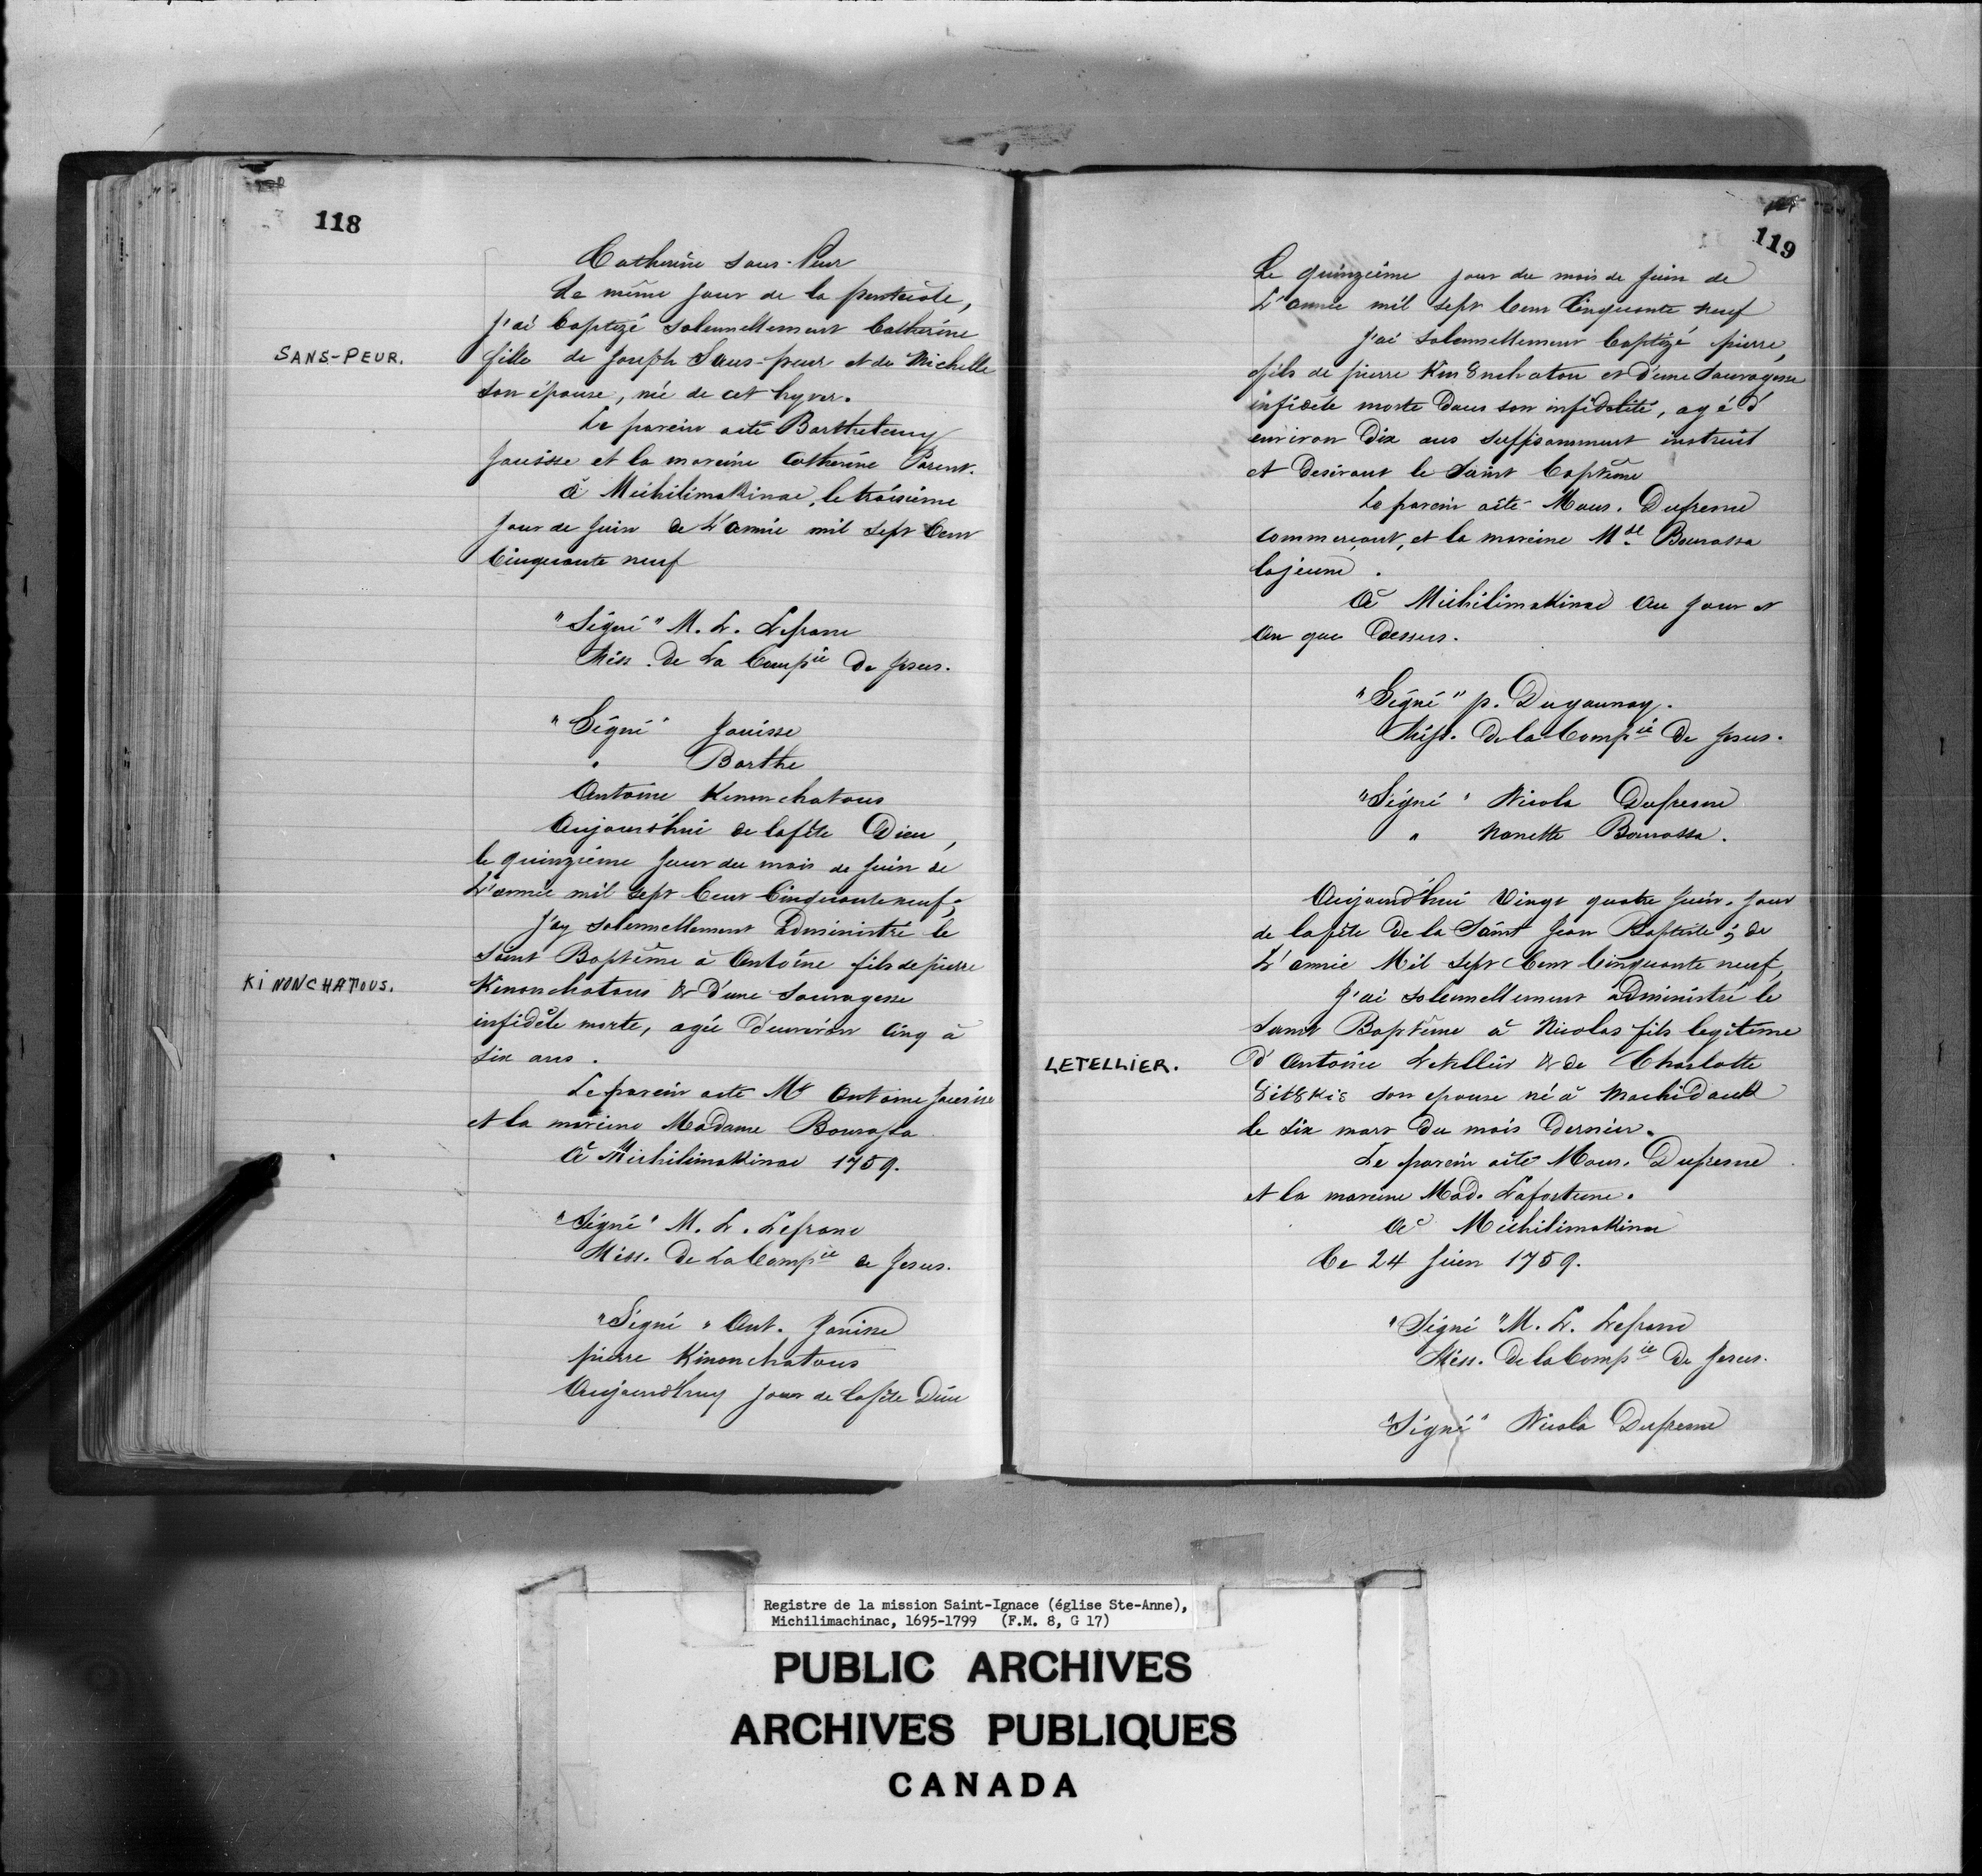 118
Catherine Sans-Peur
Le même Jour de la pentecôte,
J'ai baptizé solennellement Catherine
SANS-PEUR.
fille de Joseph Sans-peur et de Michelle
son épouse, née de cet hyver.
Le parein aété Barthelemy
Jauisse et la mareine Catherine Parent.
à Michilimakinac, le troisieme
Jour de Juin de L'année mil sept Cent
Cinquante neuf
"Signé" M. L. Lefranc
Miss. de La Compie De Jesus.
"Signé" Jauisse
" Barthe
Antoine Kinonchatous
Aujourd'hui de lafête Dieu,
le quinziéme Jour du mois de Juin de
L'année mil sept Cent Cinquante neuf;
J'ay solennellement Administré le
Saint Baptême à Antoine fils de pierre
KINONCHATOUS.
Kinonchatous & d'une Sauvagesse
infidèle morte, agée d'environ Cinq à
six ans.
Le parein aété Mr Antoine Jauisse
et la mareine Madame Bourassa
à Michilimakinac 1759.
"Signé" M. L. Lefranc
Miss. De La Compie de Jesus.
"Signé" Ant. Janisse
pierre Kinonchatous
Aujourd'huy jour de lafête Dieu
119
Le quinziéme jour du mois de Juin de
L'année mil sept Cent Cinquante neuf
J'ai solennellement baptizé pierre,
fils de pierre Kin8nchaton et d'une Sauvagesse
infidèle morte dans son infidelité, agé d'
environ Dix ans suffisamment instruit
et Desirant le Saint baptême
Le parein aété Mons. Dufresne
Commerçant, et la mareine Mde Bourassa
lajeune.
à Michilimakinac au Jour et
an que Dessus.
"Signé" p. Dujaunay.
Miss. de la Compie De Jesus.
"Signé" Nicola Dufresne
" Nanette Bourassa.
Aujourd'hui Vingt quatre Juin, Jour
de lafête de la Saint Jean Baptiste; de
L'année Mil Sept Cent Cinquante neuf,
J'ai solennellement administré le
Saint Baptême à Nicolas fils legitime
LETELLIER.
d'Antoine Letellier & de Charlotte
8it8kis son epouse né à Machidack
le six mars Du mois Dernier.
Le parein aété Mons. Dufresne
et la mareine Mad. Lafortune.
à Michilimakinac
Ce 24 Juin 1759.
"Signé" M. L. Lefranc
Miss. De la Compie De Jesus.
"Signé" Nicola Dufresne
Registre de la mission Saint-Ignace (église Ste-Anne),
Michilimachinac, 1695-1799 (F.M. 8, G 17)
PUBLIC ARCHIVES
ARCHIVES PUBLIQUES
CANADA